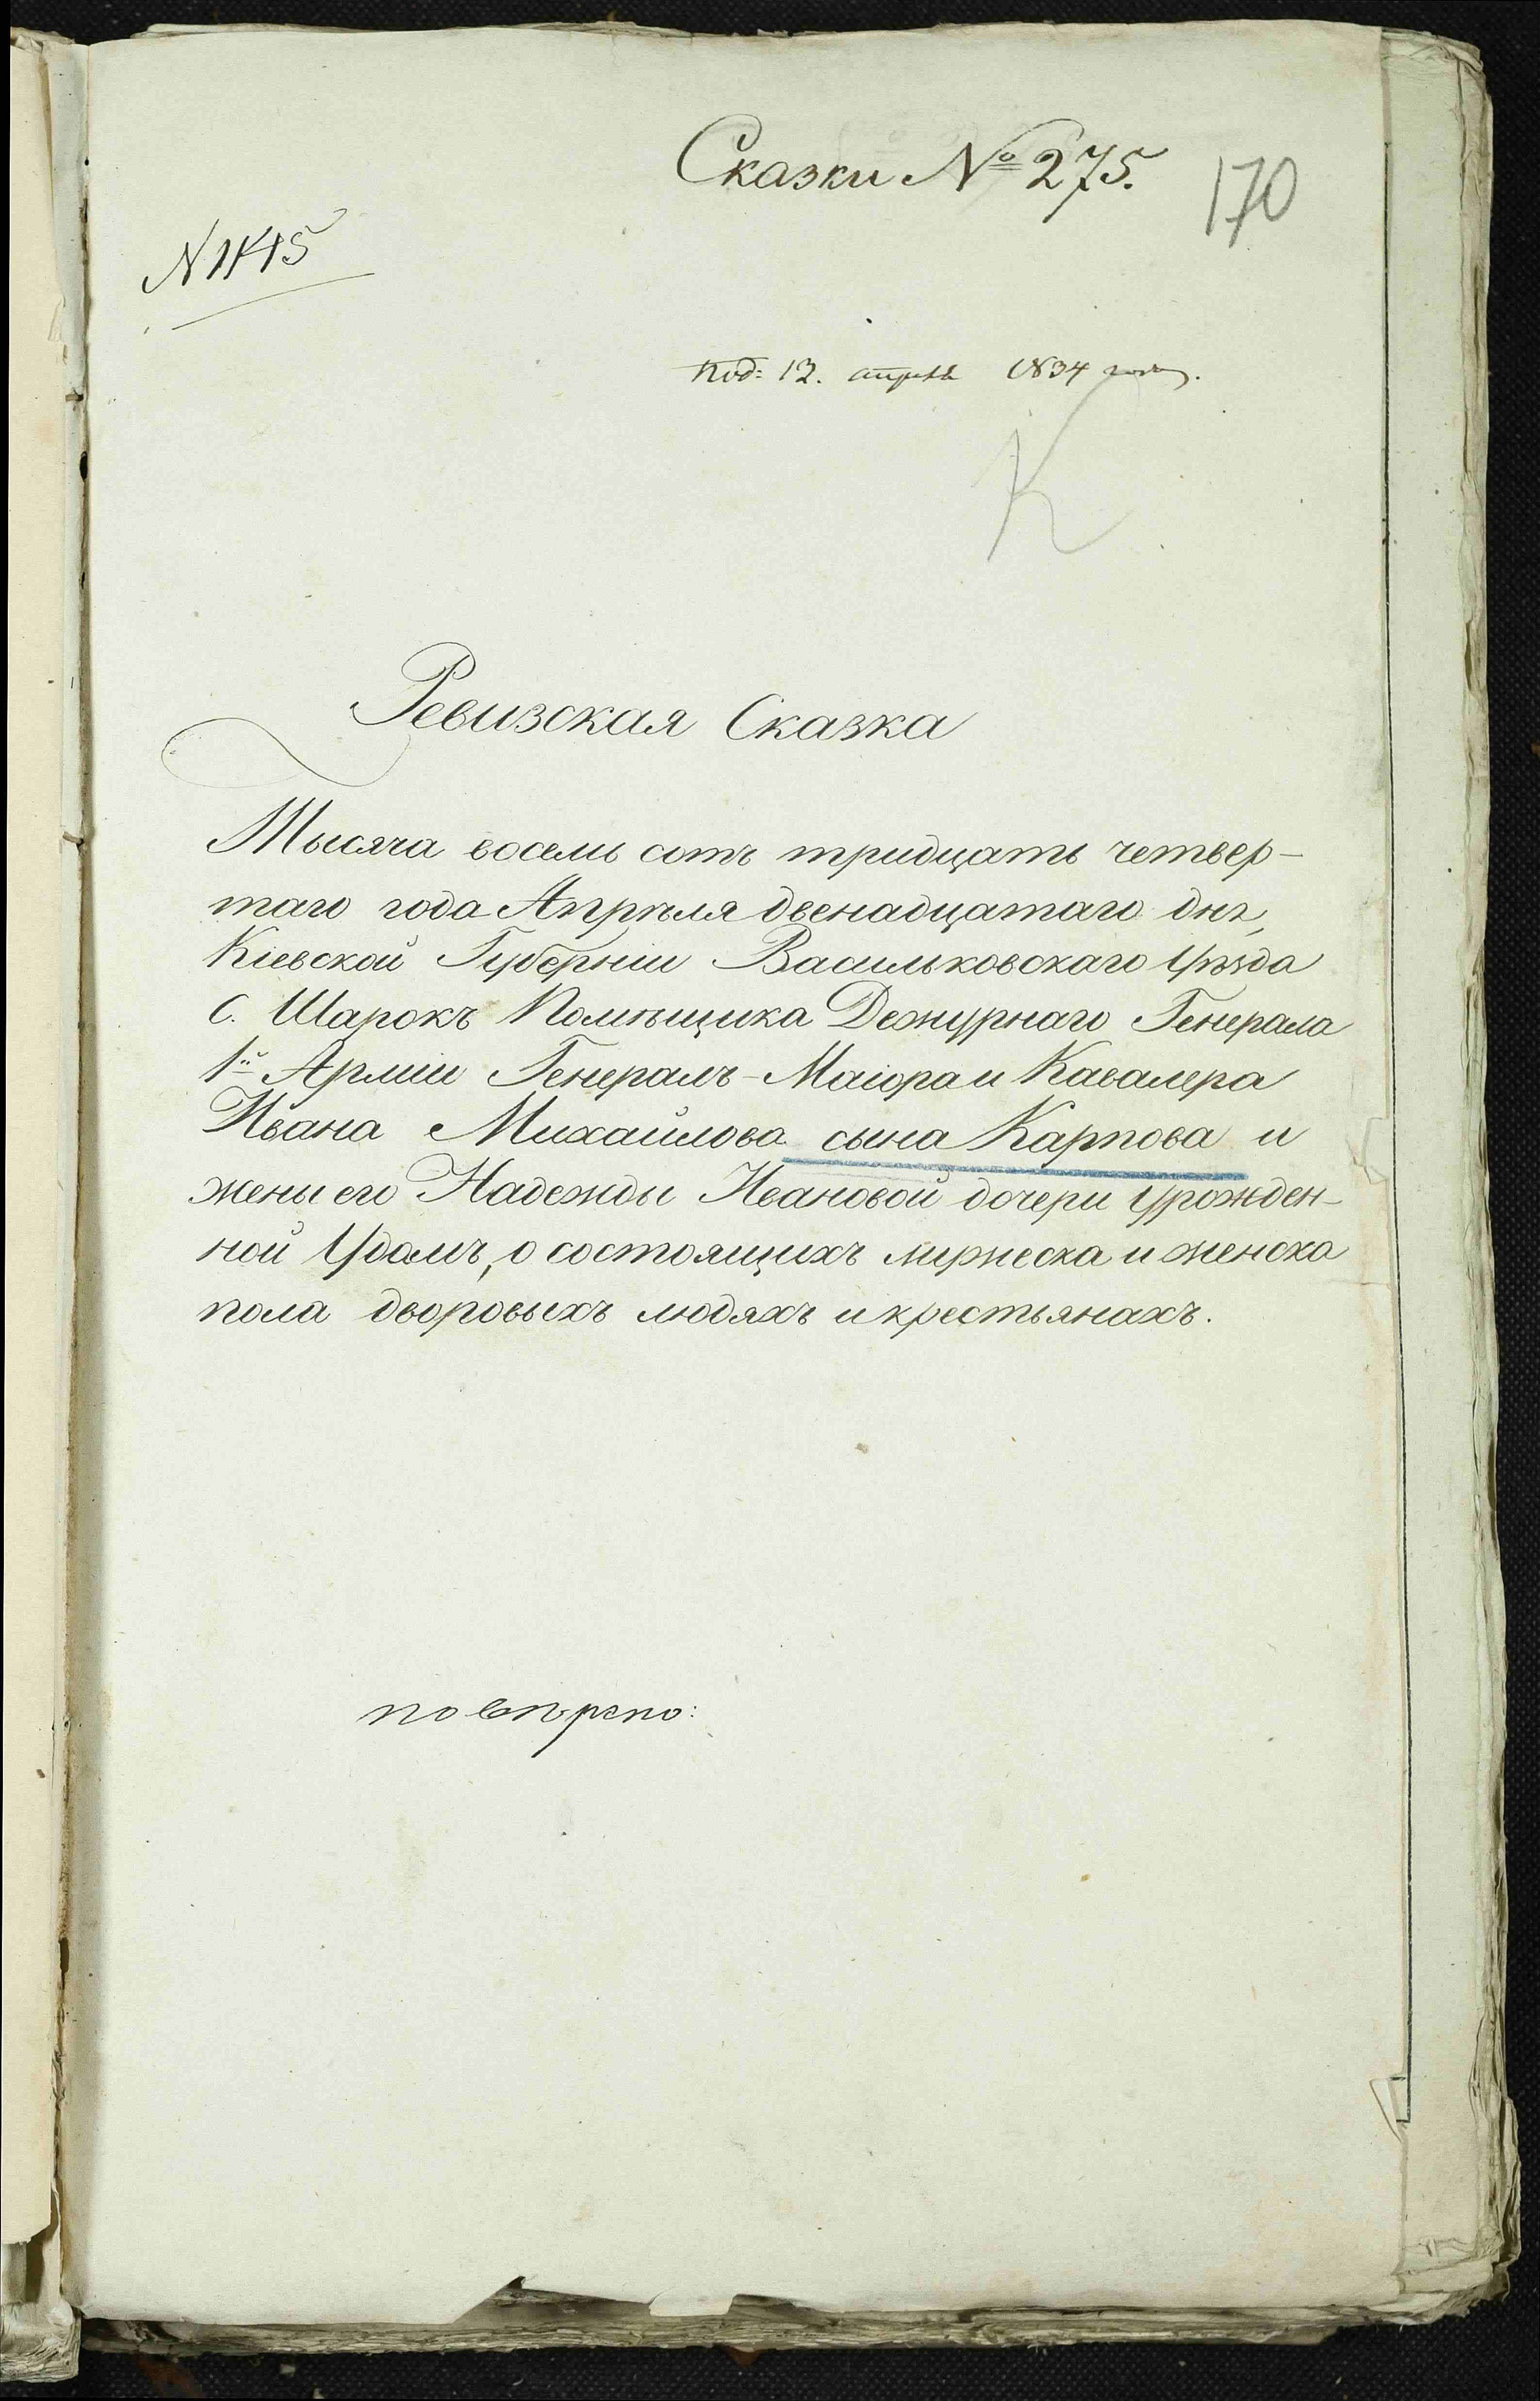 Сказки № 275.
170
N 1415
Под: 12. апреля 1834 года.
К
Ревизская Сказка
Тысяча восемь сотъ тридцать четвер-
таго года Апрѣля двенадцатаго дня,
Кіевской Губерніи Васильковскаго Уѣзда
С. Шарокъ Помѣщика Дежурнаго Генерала
1й Арміи Генералъ-Маіора и Кавалера
Ивана Михайлова сына Карпова и
жены его Надежды Ивановой дочери Урожден-
ной Удомъ, о состоящихъ мужеска и женска
пола дворовыхъ людяхъ и крестьянахъ.